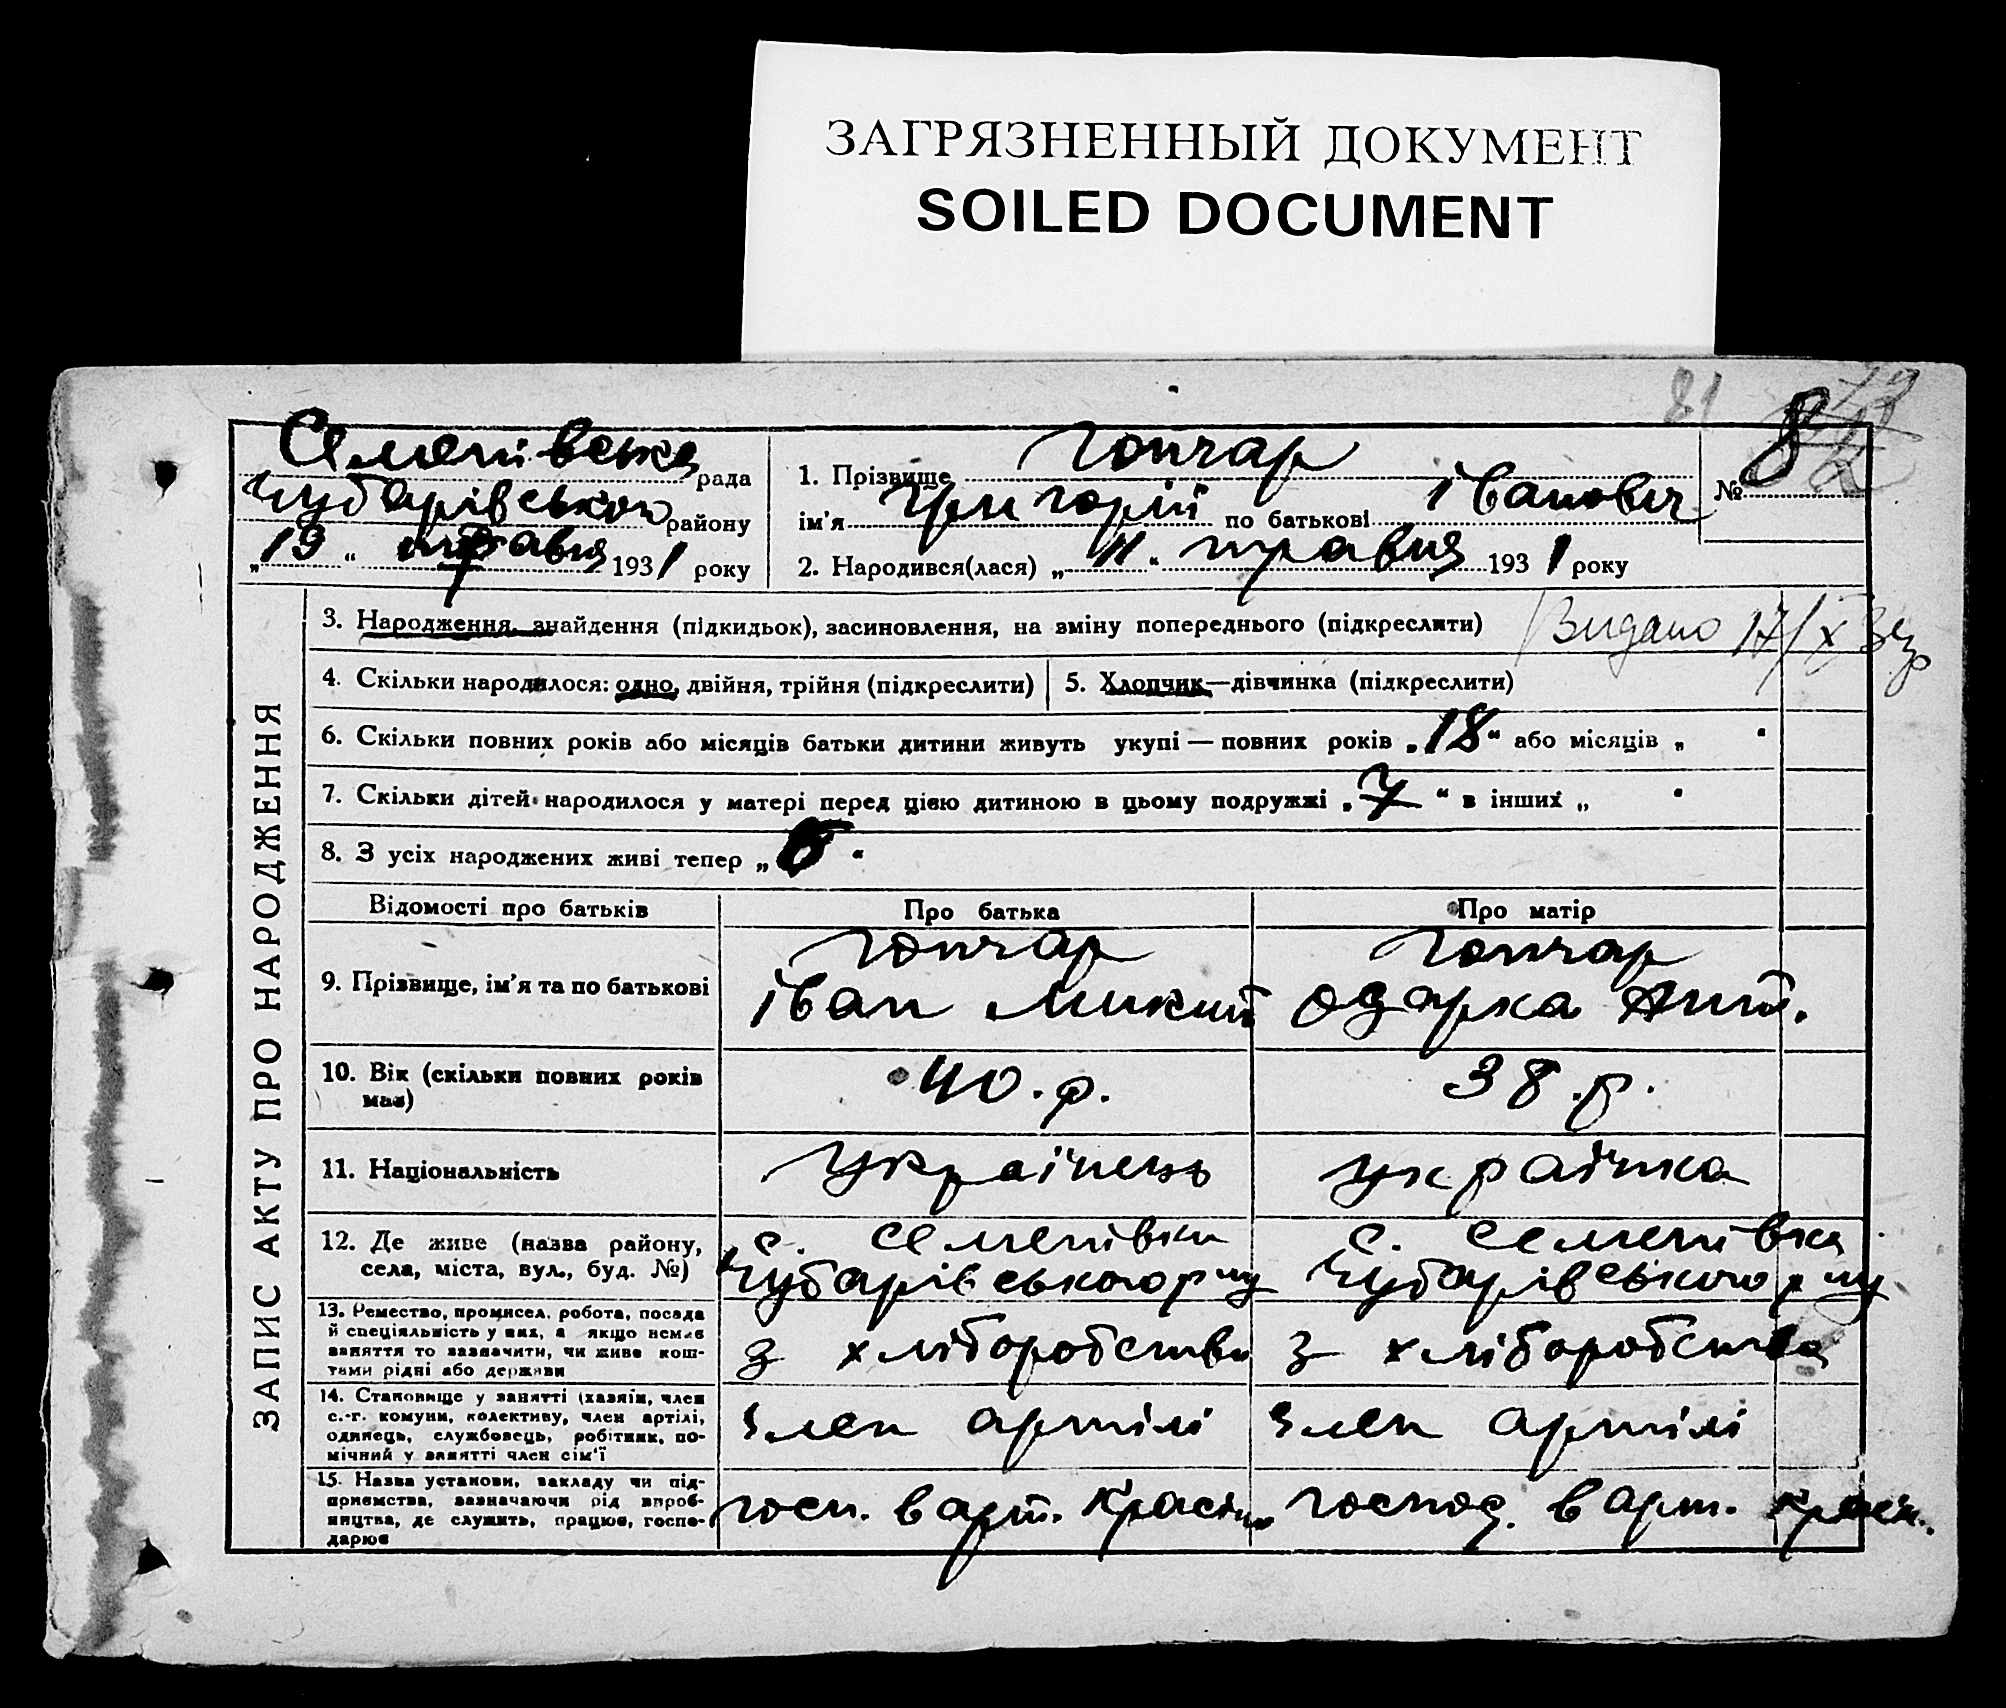 ЗАГРЯЗНЕННЫЙ ДОКУМЕНТ
SOILED DOCUMENT
81
Семенівська рада
Чубарівського району
„19“ травня 1931 року
1. Прізвище Гончар
ім'я Григорій по батькові Іванович
2. Народився(лася) „11“ травня 1931 року
№ 8
ЗАПИС АКТУ ПРО НАРОДЖЕННЯ
3. Народження, знайдення (підкидьок), засиновлення, на зміну попереднього (підкреслити)
Видано 17/X
4. Скільки народилося: одно, двійня, трійня (підкреслити)
5. Хлопчик—дівчинка (підкреслити)
6. Скільки повних років або місяців батьки дитини живуть укупі — повних років „18“ або місяців „ “
7. Скільки дітей народилося у матері перед цією дитиною в цьому подружжі „7“ в інших „ “
8. З усіх народжених живі тепер „6“
Відомості про батьків
Про батька
Про матір
9. Прізвище, ім'я та по батькові
Гончар
Іван Микит
Гончар
Одарка Ант.
10. Вік (скільки повних років
має)
40. р.
38. р.
11. Національність
Українець
Українка
12. Де живе (назва району,
села, міста, вул., буд. №)
с. Семенівки
Чубарівського р-ну
с. Семенівка
Чубарівського р-ну
13. Ремество, промисел, робота, посада
й спеціяльність у них, а якщо немає
заняття то зазначити, чи живе кош-
тами рідні або держави
з хліборобства
з хліборобства
14. Становище у занятті (хазяїн, член
с.-г. комуни, колективу, член артілі,
одинець, службовець, робітник, по-
мічний у занятті член сім'ї
член артілі
член артілі
15. Назва установи, закладу чи під-
приємства, зазначаючи рід вироб-
ництва, де служить, працює, госпо-
дарює
госп. в арт.
господ. в арт.